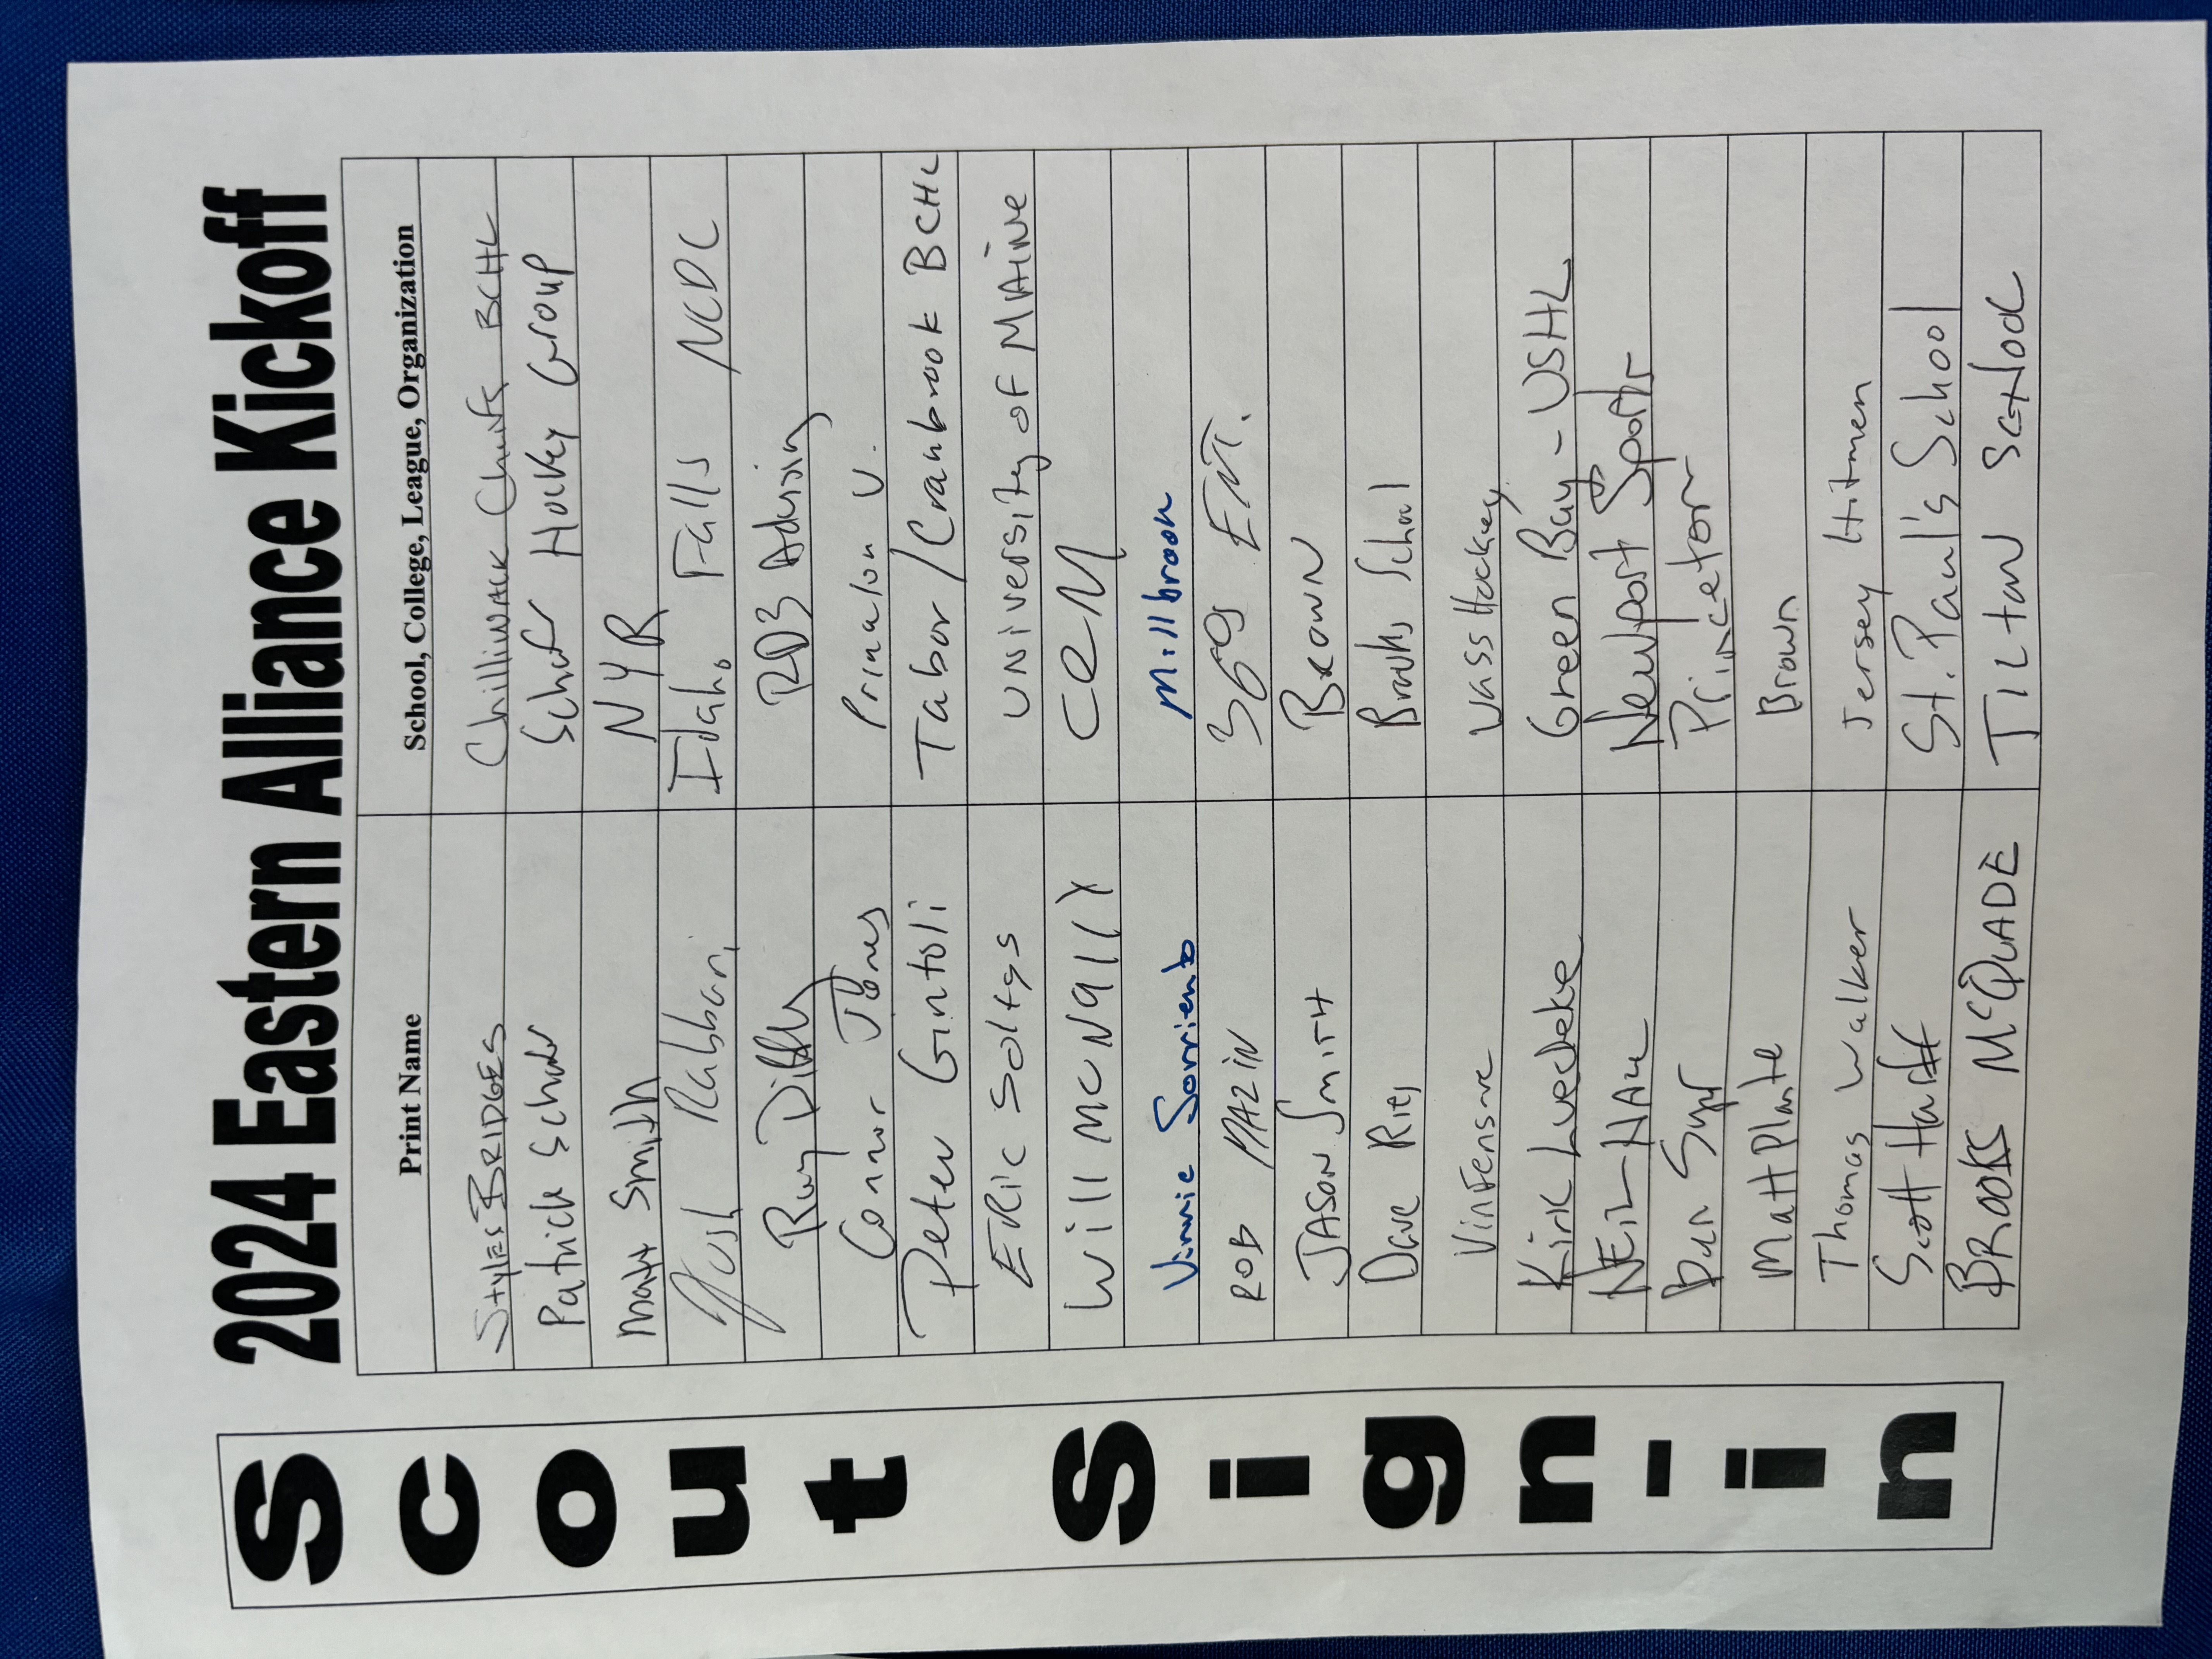 2024 Eastern Alliance Kickoff
Scout Sign-in
Print Name School, College, League, Organization
Styles BRIDGES Chilliwack Chiefs BCHL
Patrick Schafer Schafer Hockey Group
Matt Smith NYR
Josh Rabbani Idaho Falls NCDC
Ray RD3 Advising
Connor Jones Princeton U.
Peter Gintoli Tabor/Cranbrook BCHL
ERic Soltys UNiversity of MAiNe
Will McNally CCM
Vinnie Sorriento Millbrook
ROB 369 ENT.
JASON SMITH BROWN
Dave Ries Brooks School
Vin Wass Hockey
Kirk Luedeke Green Bay - USHL
NEIL Newport Sports
Dan Princeton
Matt Plante Brown
Thomas Walker Jersey Hitmen
Scott Harff St. Paul's School
BROOKS McQUADE TILTON SCHOOL